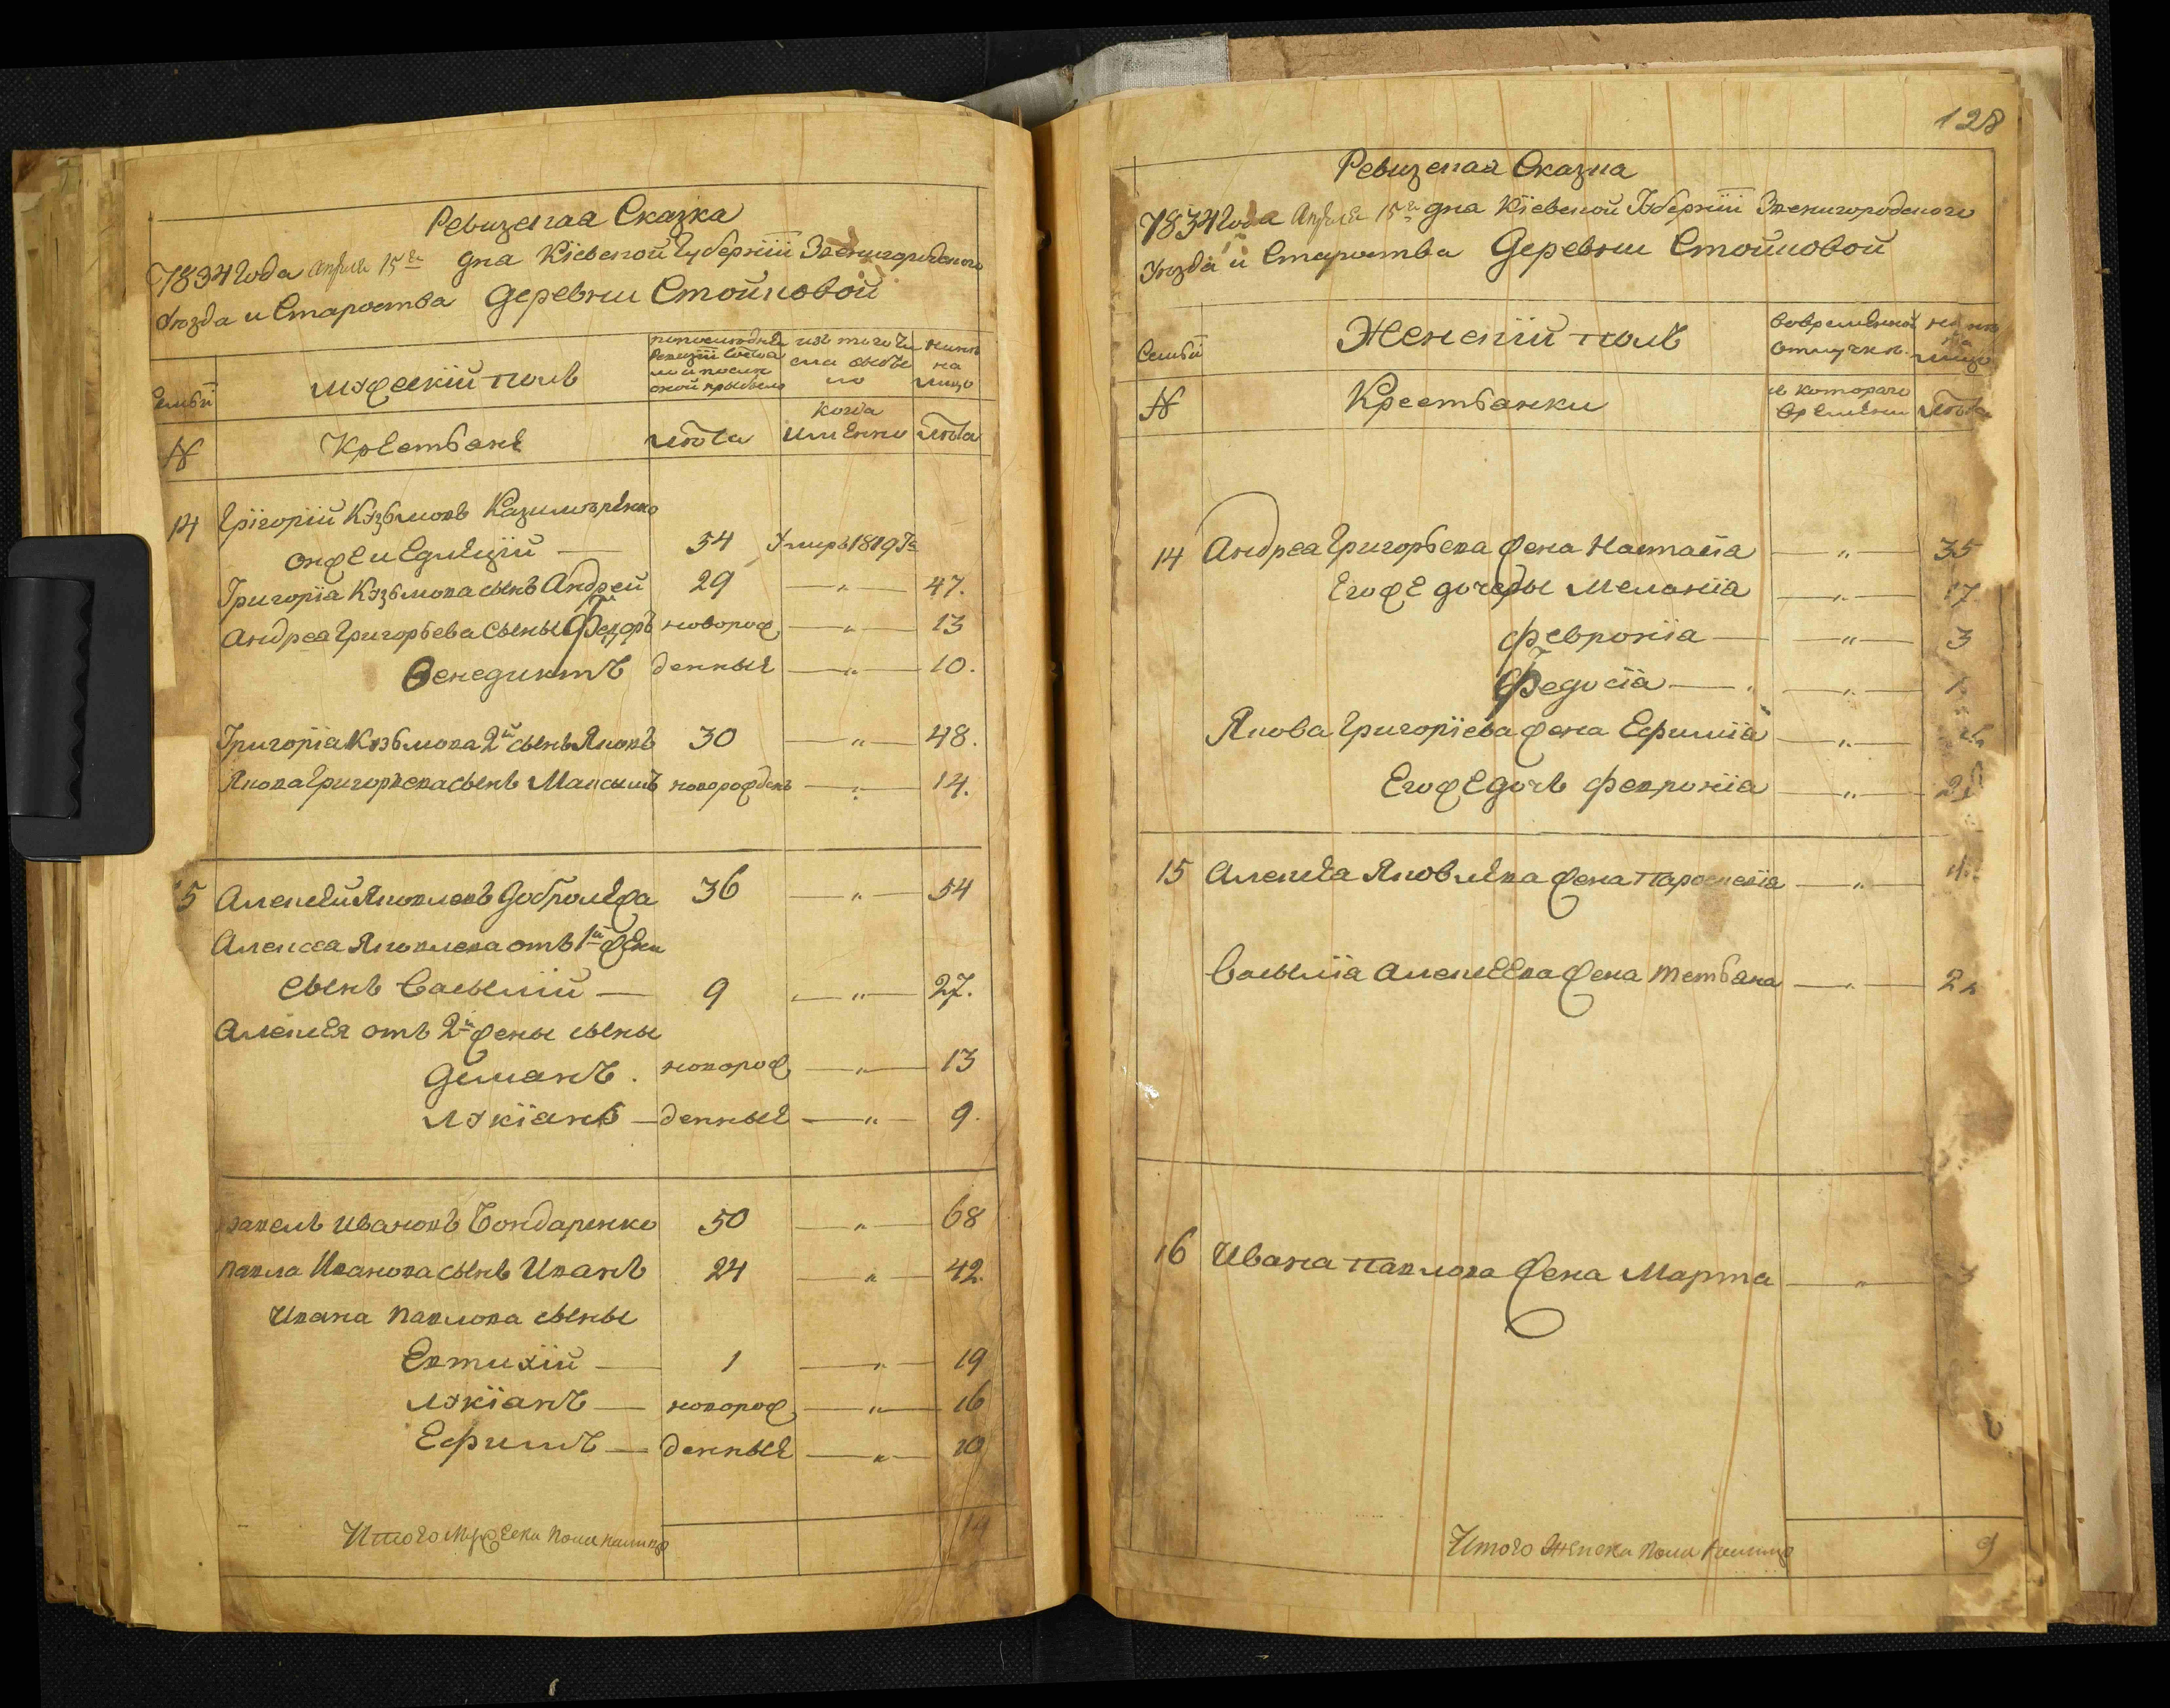 Ревизская Сказка
1834 года Апреля 15го дня Кіевской Губерніи Звенигородского
Уезда и Староства Деревни Стойковой
Семьи
Мужескій полъ
на лицо
№
Крестьяне
лета
когда именно
лета
14 Григорій Козьмовъ Казимѣренко
онже и Едикцій — 54 Умеръ 1819 Го
Григорія Козьмова сынъ Андрей 29 — „ — 47.
Андрея Григорьева сыны Федоръ новорож — „ — 13
Венедиктъ денные — „ — 10.
Григорія Козьмова 2й сынъ Яковъ 30 — „ — 48.
Якова Григорьева сынъ Максымъ новорожденъ — „ — 14.
15 Алексей Яковлевъ Добролежа 36 — „ — 54
Алексея Яковлева отъ 1й жены
сынъ Васылій — 9 — „ — 27.
Алексея отъ 2й жены сыны
Демянъ. новорож — „ — 13
Лукіянъ — денные — „ — 9.
Павелъ Ивановъ Бондаренко 50 — „ — 68
Павла Иванова сынъ Иванъ 24 — „ — 42.
Ивана Павлова сыны
Евтихій — 1 — „ — 19
Лукіанъ — новорож — „ — 16
Ефимъ — денные — „ — 10
Итого Мужеска пола налицо 14
128
Ревизская Сказка
1834 года Апреля 15го дня Кіевской Губерніи Звенигородского
Уезда и Староства Деревни Стойковой
Семьи
Женскій полъ
Во временной отлучке
на лицо
№
Крестьянки
с которого времени
лета
14 Андрея Григорьева жена Настасія — „ — 35
Егоже дочеры Меланія — „ — 17
Февронія — „ — 3
Федосія — „ — 1
Якова Григоріева жена Ефимія — „ —
Егоже дочь Февронія — „ —
15 Алексея Яковлева жена Параскевія — „ —
Васылія Алексеева жена Тетьяна — „ —
16 Ивана Павлова жена Марта — „ —
Итого Женска пола налицо 9